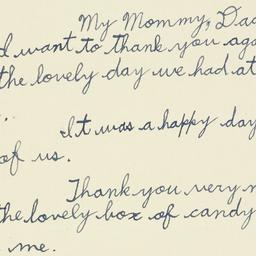 My Mommy, Dad
I want to thank you aga
the lovely day we had at
It was a happy day
of us.
Thank you very
the lovely box of candy
me.